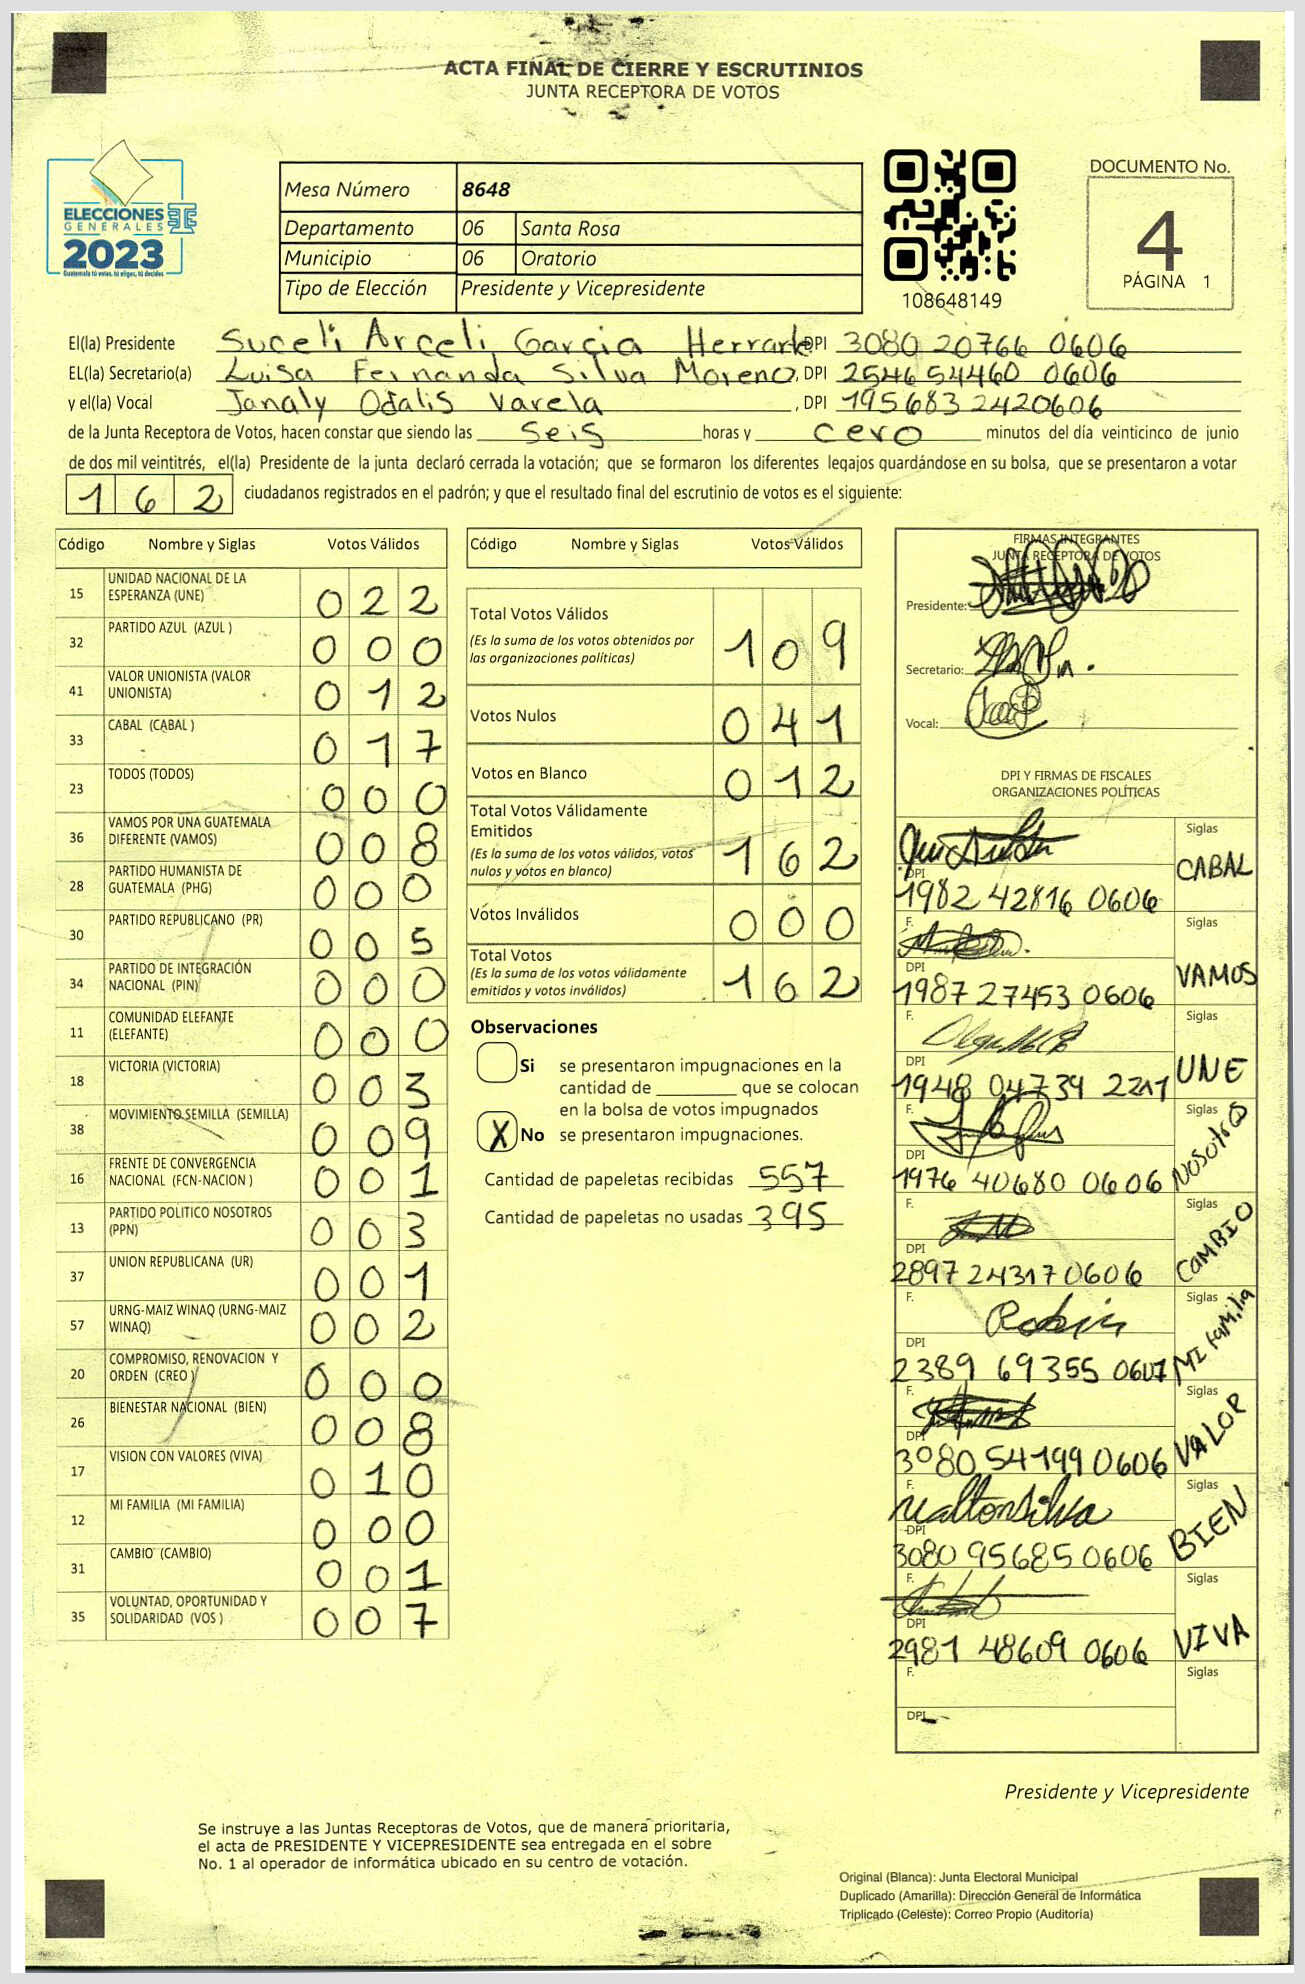 ACTA FINAL DE CIERRE Y ESCRUTINIOS
JUNTA RECEPTORA DE VOTOS
ELECCIONES
GENERALES
2023
Guatemala tú votas, tú eliges, tú decides
Mesa Número 8648
Departamento 06 Santa Rosa
Municipio 06 Oratorio
Tipo de Elección Presidente y Vicepresidente
108648149
DOCUMENTO No.
4
PÁGINA 1
El(la) Presidente Suceli Arceli Garcia DPI 3080 20766 0606
EL(la) Secretario(a) Luisa Fernanda Silva Moreno, DPI 2546 54460 0606
y el(la) Vocal Janaly Odalis Varela, DPI 195683 2420606
de la Junta Receptora de Votos, hacen constar que siendo las seis horas y cero minutos del día veinticinco de junio
de dos mil veintitrés, el(la) Presidente de la junta declaró cerrada la votación; que se formaron los diferentes legajos guardándose en su bolsa, que se presentaron a votar
162 ciudadanos registrados en el padrón; y que el resultado final del escrutinio de votos es el siguiente:
Código Nombre y Siglas Votos Válidos
15 UNIDAD NACIONAL DE LA ESPERANZA (UNE) 022
32 PARTIDO AZUL (AZUL ) 000
41 VALOR UNIONISTA (VALOR UNIONISTA) 012
33 CABAL (CABAL ) 017
23 TODOS (TODOS) 000
36 VAMOS POR UNA GUATEMALA DIFERENTE (VAMOS) 008
28 PARTIDO HUMANISTA DE GUATEMALA (PHG) 000
30 PARTIDO REPUBLICANO (PR) 005
34 PARTIDO DE INTEGRACIÓN NACIONAL (PIN) 000
11 COMUNIDAD ELEFANTE (ELEFANTE) 000
18 VICTORIA (VICTORIA) 003
38 MOVIMIENTO SEMILLA (SEMILLA) 009
16 FRENTE DE CONVERGENCIA NACIONAL (FCN-NACION ) 001
13 PARTIDO POLITICO NOSOTROS (PPN) 003
37 UNION REPUBLICANA (UR) 001
57 URNG-MAIZ WINAQ (URNG-MAIZ WINAQ) 002
20 COMPROMISO, RENOVACION Y ORDEN (CREO ) 000
26 BIENESTAR NACIONAL (BIEN) 008
17 VISION CON VALORES (VIVA) 010
12 MI FAMILIA (MI FAMILIA) 000
31 CAMBIO (CAMBIO) 001
35 VOLUNTAD, OPORTUNIDAD Y SOLIDARIDAD (VOS ) 007
Código Nombre y Siglas Votos Válidos
Total Votos Válidos 109
(Es la suma de los votos obtenidos por
las organizaciones políticas)
Votos Nulos 041
Votos en Blanco 012
Total Votos Válidamente
Emitidos 162
(Es la suma de los votos válidos, votos
nulos y votos en blanco)
Votos Inválidos 000
Total Votos 162
(Es la suma de los votos válidamente
emitidos y votos inválidos)
Observaciones
Si se presentaron impugnaciones en la
cantidad de ________ que se colocan
en la bolsa de votos impugnados
X No se presentaron impugnaciones.
Cantidad de papeletas recibidas 557
Cantidad de papeletas no usadas 395
FIRMAS INTEGRANTES
JUNTA RECEPTORA DE VOTOS
Presidente:
Secretario:
Vocal:
DPI Y FIRMAS DE FISCALES
ORGANIZACIONES POLÍTICAS
Siglas CABAL
DPI 1982 42816 0606
F. Siglas VAMOS
DPI 1987 27453 0606
F. Siglas UNE
DPI 1948 04739 2217
F. Siglas NOSOTROS
DPI 1976 40680 0606
F. Siglas CAMBIO
DPI 2897 24317 0606
F. Robin Siglas Mi familia
DPI 2389 69355 0607
F. Siglas VALOR
DPI 3080 54199 0606
F. Walton Silva Siglas BIEN
DPI 3080 95685 0606
F. Siglas VIVA
DPI 2981 48609 0606
F. Siglas
DPI
Presidente y Vicepresidente
Se instruye a las Juntas Receptoras de Votos, que de manera prioritaria,
el acta de PRESIDENTE Y VICEPRESIDENTE sea entregada en el sobre
No. 1 al operador de informática ubicado en su centro de votación.
Original (Blanca): Junta Electoral Municipal
Duplicado (Amarilla): Dirección General de Informática
Triplicado (Celeste): Correo Propio (Auditoría)